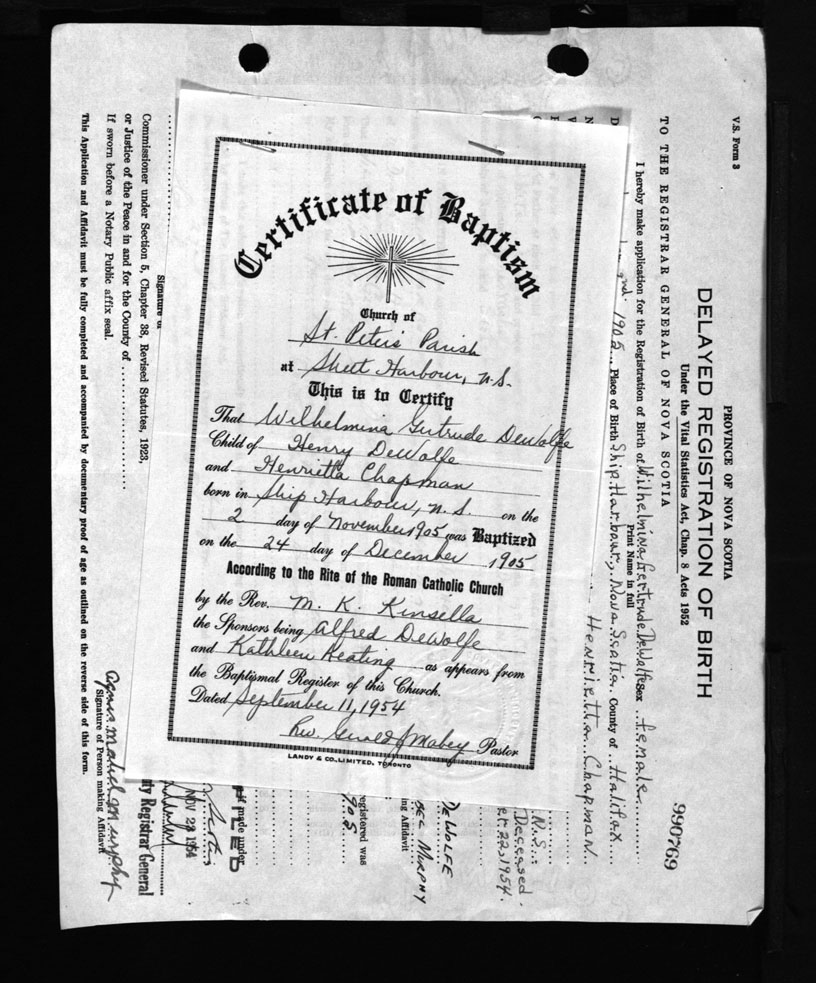 Certificate of Baptism
Church of
St. Peter's Parish
at Sheet Harbour, N.S.
This is to Certify
That Wilhelmina Gertrude DeWolfe
Child of Henry DeWolfe
and Henrietta Chapman
born in Ship Harbour, N.S. on the
2 day of November 1905 was Baptized
on the 24 day of December 1905
According to the Rite of the Roman Catholic Church
by the Rev. M. K. Kinsella
the Sponsors being Alfred DeWolfe
and Kathleen Keating as appears from
the Baptismal Register of this Church.
Dated September 11, 1954
Rev. Gerald J Mabey Pastor
LANDY & CO. LIMITED, TORONTO
V.S. Form 3
PROVINCE OF NOVA SCOTIA
DELAYED REGISTRATION OF BIRTH
Under the Vital Statistics Act, Chap. 8 Acts 1952
990769
TO THE REGISTRAR GENERAL OF NOVA SCOTIA
I hereby make application for the Registration of Birth of Wilhelmina Gertrude DeWolfe Sex female
Print Name in full
2nd. 1905 Place of Birth Ship Harbour, Nova Scotia County of Halifax
Henrietta Chapman
N.S.
Deceased.
22, 1954.
DEWOLFE
MURPHY
ing Affidavit
egistered was
905
if made under
FILED
NOV 23 1954
ty Registrar General
Signature of
Commissioner under Section 5, Chapter 38, Revised Statutes, 1923,
or Justice of the Peace in and for the County of
If sworn before a Notary Public affix seal.
Agnes Mabel Murphy
Signature of Person making Affidavit
This Application and Affidavit must be fully completed and accompanied by documentary proof of age as outlined on the reverse side of this form.